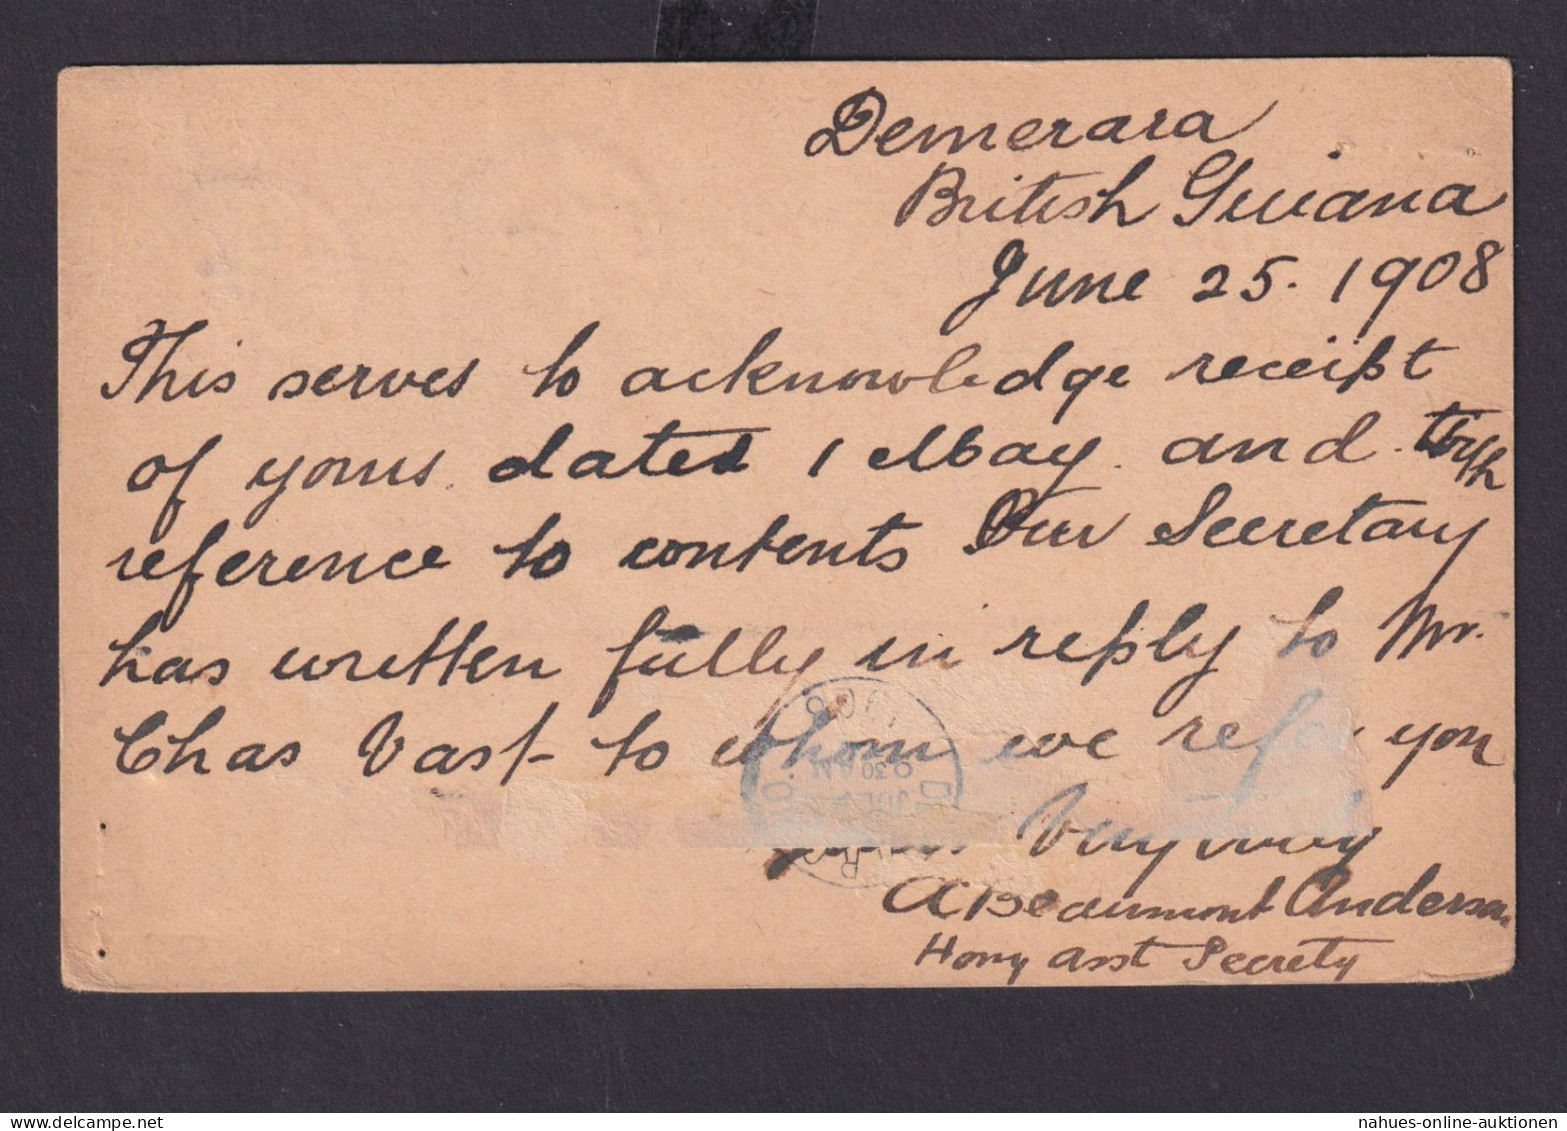 Demerara
British Guiana
June 25. 1908
This serves to acknowledge receipt
of yours dated 1 May and with
reference to contents Our Secretary
has written fully in reply to Mr.
Chas Vast to whom we refer you
Yours Very truly
A Beaumont Anderson
Hony Asst Secrety
1908
9 30 AM
JUL
nahues-online-auktionen.de
nahues-online-auktionen